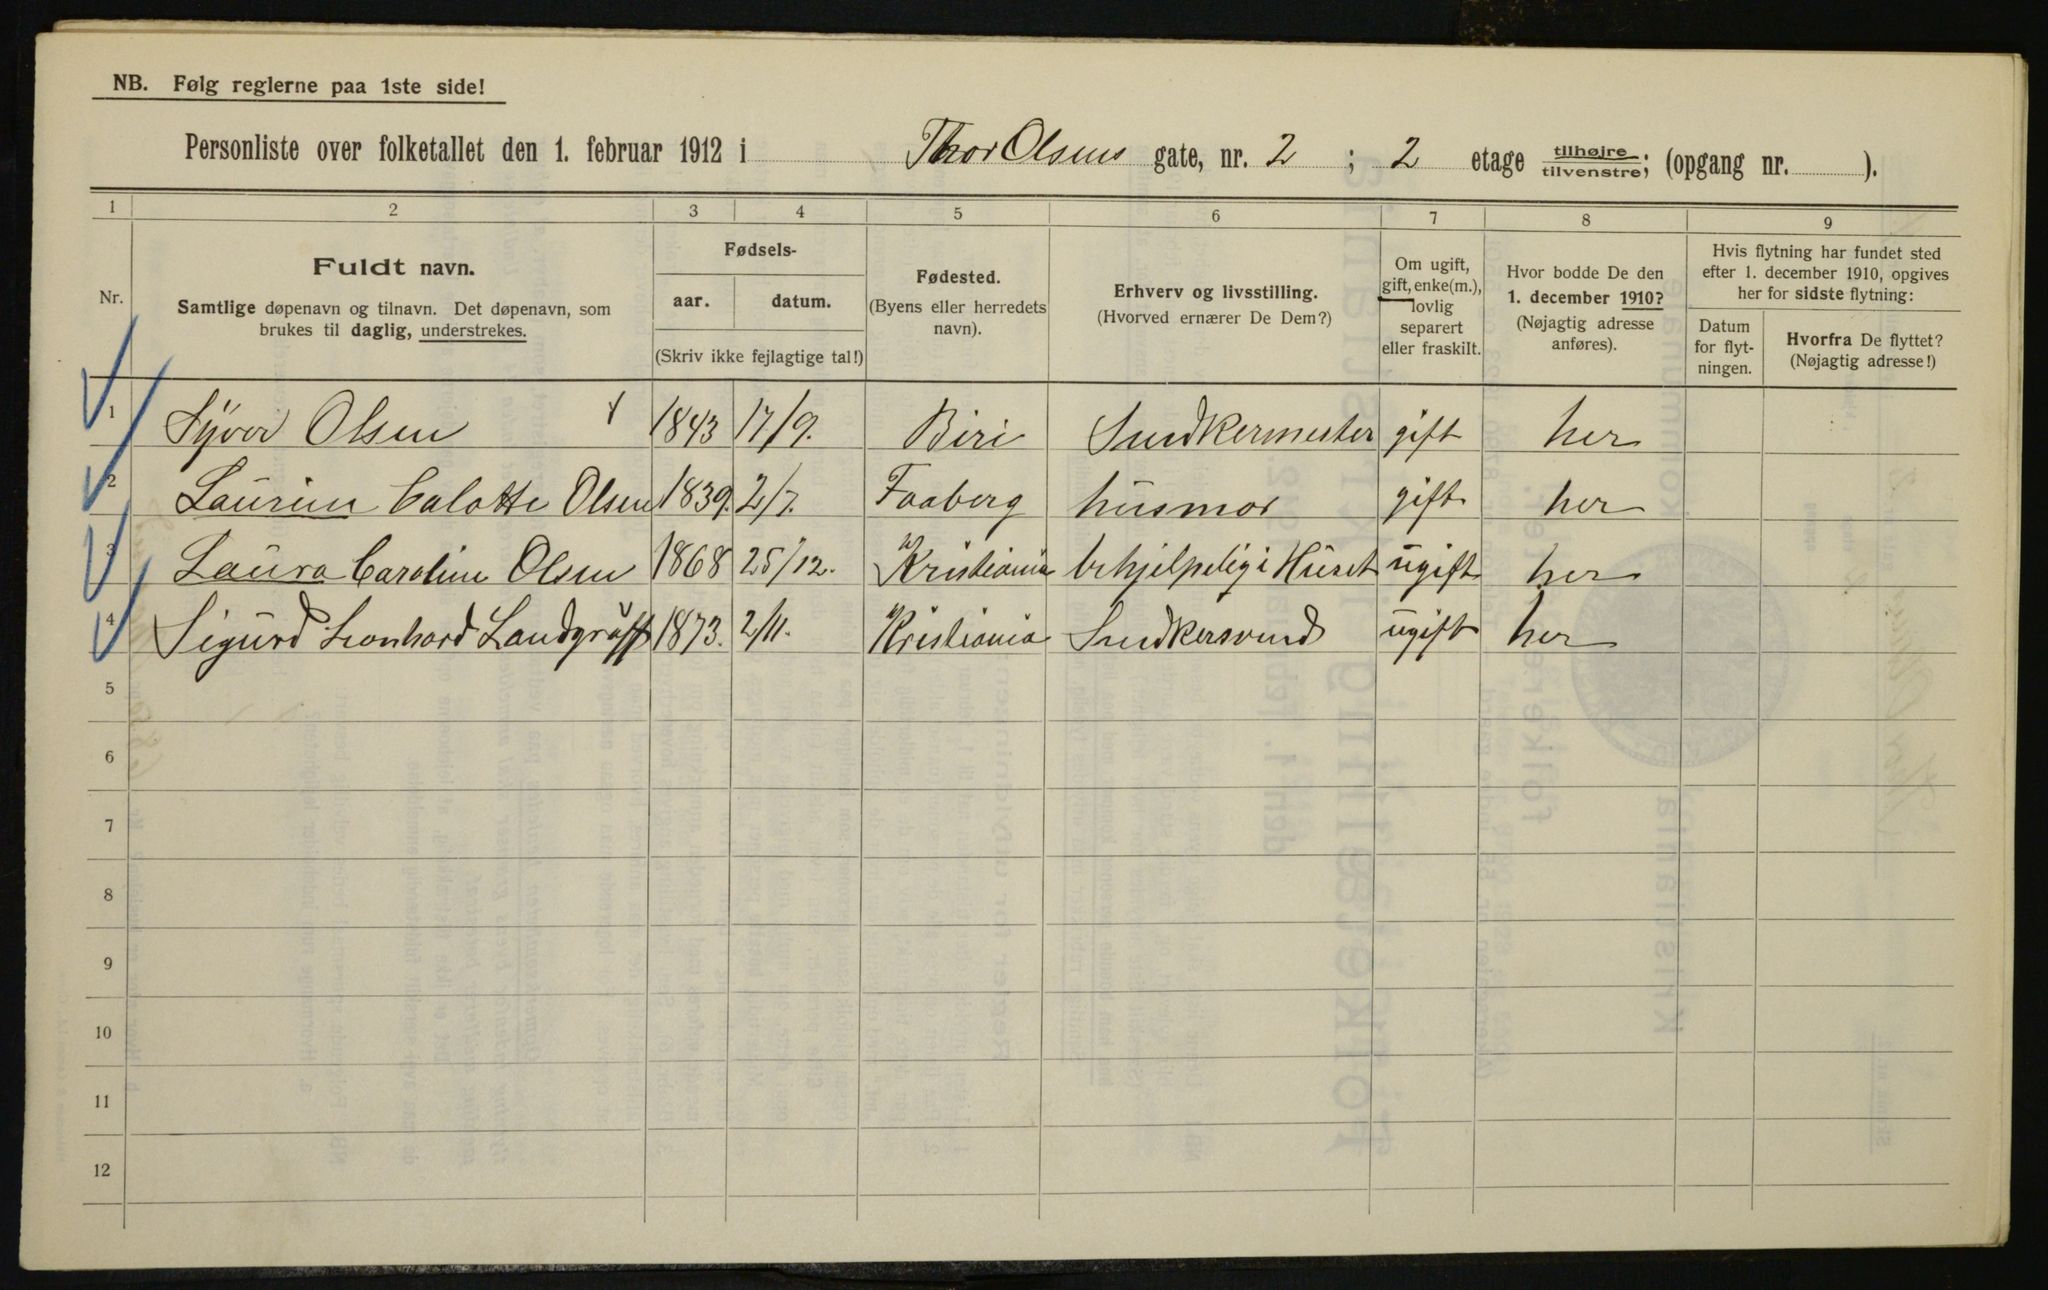 NB. Følg reglerne paa 1ste side!
Personliste over folketallet den 1. februar 1912 i Thor Olsens gate, nr. 2 ; 2 etage tilhøjre/tilvenstre; (opgang nr. ).
1 2 3 4 5 6 7 8 9
Nr.
Fuldt navn.
Samtlige døpenavn og tilnavn. Det døpenavn, som
brukes til daglig, understrekes.
Fødsels-
aar. datum.
(Skriv ikke fejlagtige tal!)
Fødested.
(Byens eller herredets
navn).
Erhverv og livsstilling.
(Hvorved ernærer De Dem?)
Om ugift,
gift, enke(m.),
lovlig
separert
eller fraskilt.
Hvor bodde De den
1. december 1910?
(Nøjagtig adresse
anføres).
Hvis flytning har fundet sted
efter 1. december 1910, opgives
her for sidste flytning:
Datum
for flyt-
ningen.
Hvorfra De flyttet?
(Nøjagtig adresse!)
1 Syver Olsen 1843 17/9. Biri Snedkermester gift her
2 Laurine Calotte Olsen 1839. 2/7. Faaberg husmor gift her
3 Laura Caroline Olsen 1868 25/12. Kristiania behjelpelig i Huset ugift her
4 Sigurd Leonhard Landgräff 1873. 2/11. Kristiania Snedkersvend ugift her
5
6
7
8
9
10
11
12